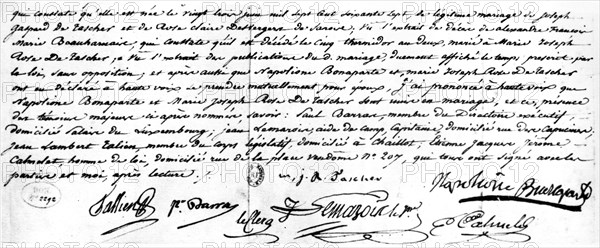 qui constate qu'elle est née le vingt trois juin mil sept cent soixante sept, de légitime mariage de Joseph
Gaspard de Tascher et de Rose claire Desvergers de Sanois; Vu l'extrait de décès de alexandre françois
Marie Beauharnais, qui constate qu'il est décédé le Cinq thermidor an deux, marié à Marie Joseph
Rose De Tascher; Vu l'extrait des publications du d. mariage, duement affiché le temps prescrit par
la loi, sans opposition; et après aussi que Napolione Bonaparte et, marie Joseph Rose De Tascher
ont eu déclaré à haute voix se prendre mutuellement pour époux, J'ai prononcé à haute voix que
Napolione Bonaparte et Marie Joseph Rose De Tascher sont unis en mariage, et ce, présence
des témoins majeurs ci après nommés savoir: Paul Barras, membre du Directoire exécutif
domicilié Palais du Luxembourg, Jean Lemarois, aide de camp, Capitaine, domicilié rue des Capucines,
Jean Lambert Talien, membre du Corps législatif, domicilié à Chaillot, Etienne Jacques Jérôme
Calmelet, homme de loi, domicilié rue de la place vendome N° 207, qui tous ont signé avec les
parties et moi, après lecture.
M. J. R. Tascher
Napolione Buonaparte
Tallien P. Barras leClercq J Lemarois le jne Calmelet
PHOTO12